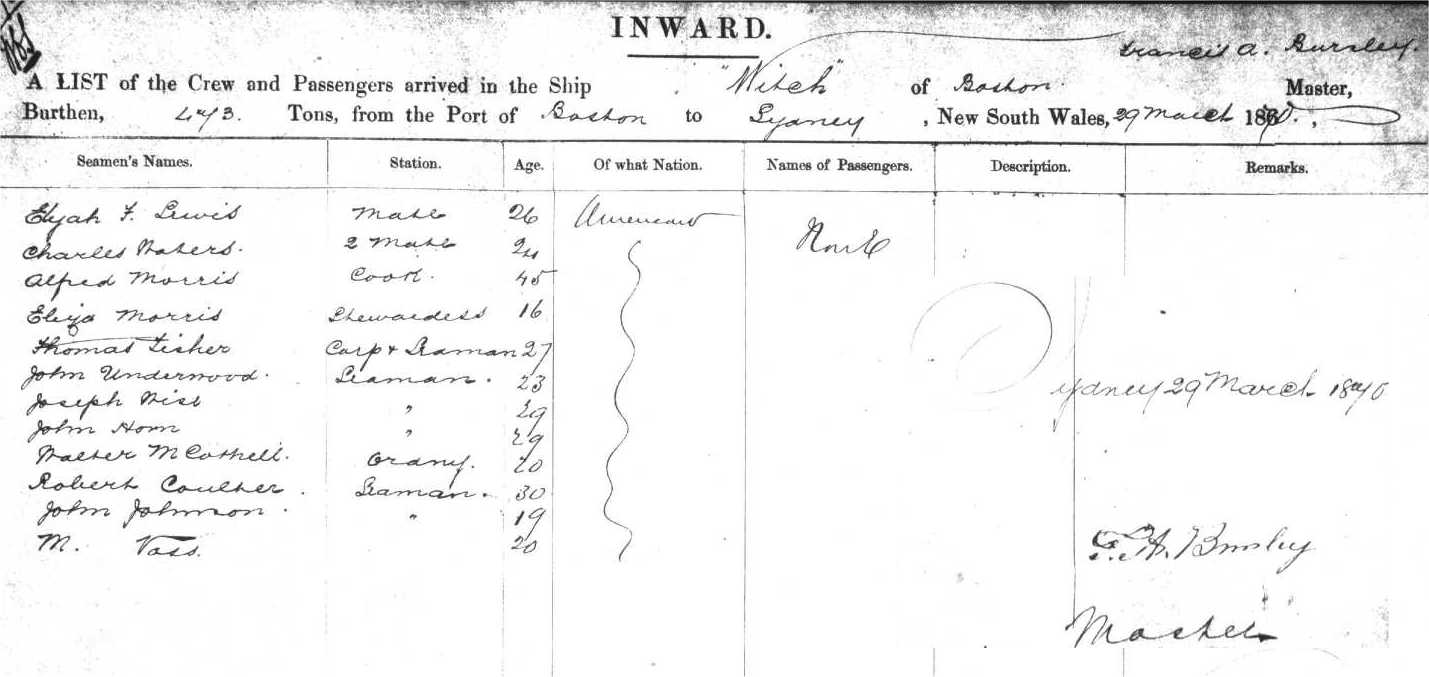 INWARD.
Francis A. Bursley.
A LIST of the Crew and Passengers arrived in the Ship "Witch" of Boston Master,
Burthen, 473 Tons, from the Port of Boston to Sydney, New South Wales, 29 March 1870.,
Seamen's Names. Station. Age. Of what Nation. Names of Passengers. Description. Remarks.
Elijah F. Lewis Mate 26 American None
Charles Waters. 2 Mate 24
Alfred Morris Cook. 45
Eliza Morris Stewardess 16
Thomas Fisher Carp & Seaman 27
John Underwood. Seaman. 23 Sydney 29 March 1870
Joseph Wise " 29
John Horn " 29
Walter 20
Robert Coulter. Seaman. 30
John Johnson. " 19
M. Vass. 20
F. A. Bursley
Master